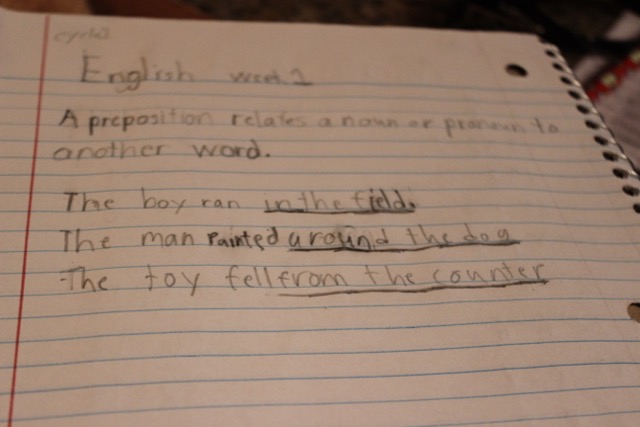 cycle
English week 1
A preposition relates a noun or pronoun to
another word.
The boy ran in the field.
The man Painted around the dog
The toy fell from the counter